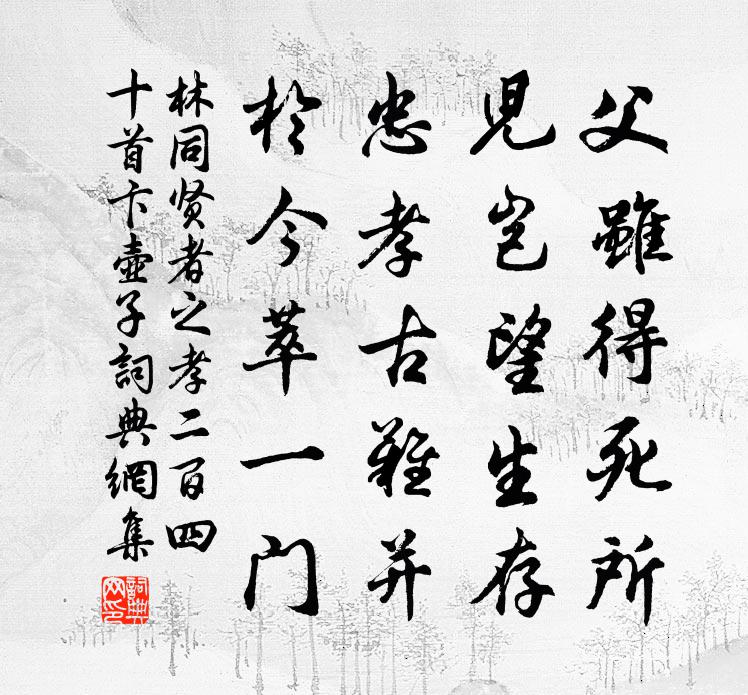 父雖得死所
児豈望生存
忠孝古難并
於今萃一門
林同贤者之孝二百四
十首卞壷子詞典網集
詞典